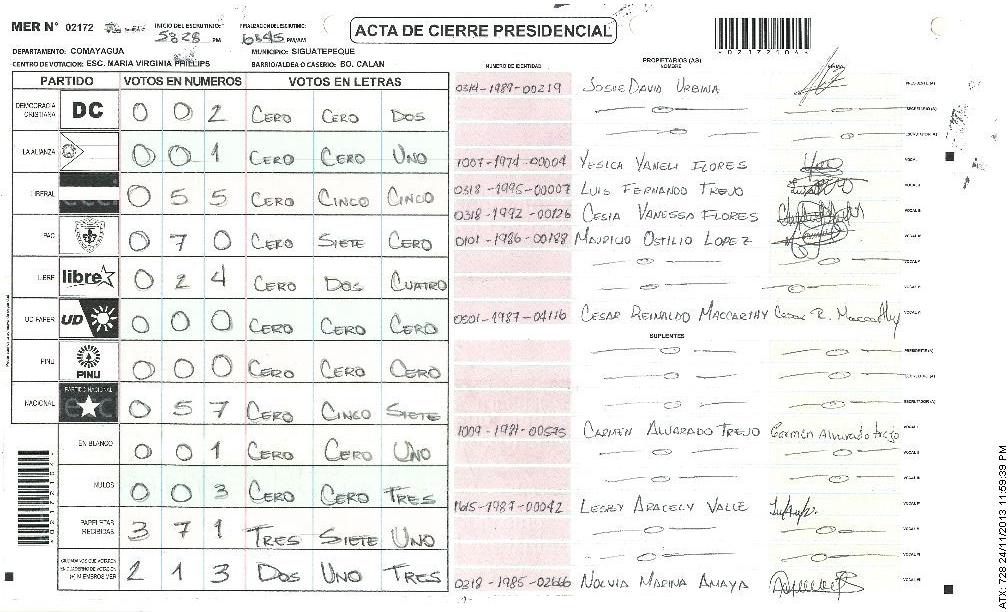 MER N° 02172 INICIO DEL ESCRUTINIO: 5:828 PM FINALIZACION DEL ESCRUTINIO: 6:845 PM/AM
ACTA DE CIERRE PRESIDENCIAL
02172104
DEPARTAMENTO: COMAYAGUA MUNICIPIO: SIGUATEPEQUE
CENTRO DE VOTACION: ESC. MARIA VIRGINIA PHILLIPS BARRIO/ALDEA O CASERIO: BO. CALAN
NUMERO DE IDENTIDAD PROPIETARIOS (AS) NOMBRE FIRMA
PARTIDO VOTOS EN NUMEROS VOTOS EN LETRAS
DEMOCRACIA CRISTIANA DC 0 0 2 CERO CERO DOS
LA ALIANZA 0 0 1 CERO CERO UNO
LIBERAL 0 5 5 CERO CINCO CINCO
PAC 0 7 0 CERO SIETE CERO
LIBRE libre 0 2 4 CERO DOS CUATRO
UD-FAPER UD 0 0 0 CERO CERO CERO
PINU PINU 0 0 0 CERO CERO CERO
NACIONAL PARTIDO NACIONAL 0 5 7 CERO CINCO SIETE
EN BLANCO 0 0 1 CERO CERO UNO
NULOS 0 0 3 CERO CERO TRES
PAPELETAS RECIBIDAS 3 7 1 TRES SIETE UNO
CIUDADANOS QUE VOTARON EN CUADERNO DE VOTACION (+) MIEMBROS MER 2 1 3 DOS UNO TRES
0314-1989-00219 JOSUE DAVID URBINA PRESIDENTE (A)
SECRETARIO (A)
ESCRUTADOR (A)
1007-1974-00004 YESICA YANELI FLORES VOCAL I
0318-1995-00007 LUIS FERNANDO TREJO VOCAL II
0318-1992-00126 CESIA VANESSA FLORES VOCAL III
0101-1986-00188 MAURICIO OSTILIO LOPEZ
0501-1987-04116 CESAR REINALDO MACCARTHY Cesar R. Maccarthy
SUPLENTES
PRESIDENTE (A)
SECRETARIO (A)
ESCRUTADOR (A)
1009-1981-00595 CARMEN ALVARADO TREJO Carmen Alvarado trejo VOCAL I
1615-1987-00042 LESBY ARACELY VALLE
0318-1985-02666 NOLVIA MARINA AMAYA
ATX 728 24/11/2013 11:59:39 PM